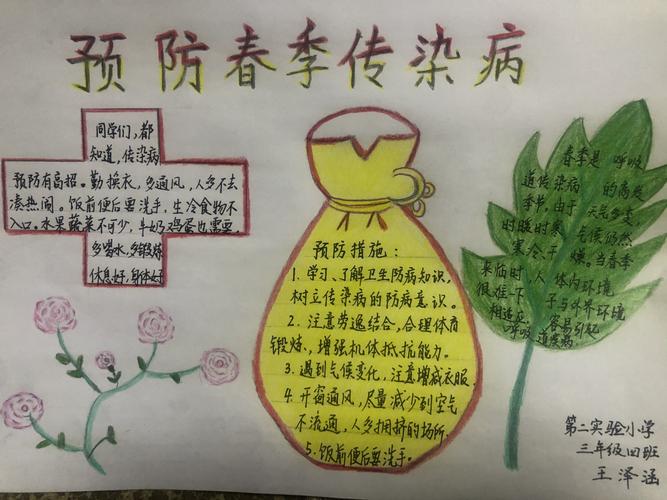 预防春季传染病
同学们，都
知道，传染病
预防有高招。勤换衣，多通风，人多不去
凑热闹。饭前便后要洗手，生冷食物不
入口。水果蔬菜不可少，牛奶鸡蛋也需要
多喝水，多锻炼
休息好，身体好
预防措施：
1.学习、了解卫生防病知识，
树立传染病的防病意识。
2.注意劳逸结合，合理体育
锻炼、增强机体抵抗能力。
3.遇到气候变化，注意增减衣服
4.开窗通风，尽量减少到空气
不流通，人多拥挤的场所
5.饭前便后要洗手。
春季是 呼吸
道传染病 的高发
季节，由于 天气多变
时暖时寒 气候仍然
寒冷、干 燥。当春季
来临时，人 体内环境
很难一下 子与外界环境
相适应 容易引起
呼吸道疾病
第二实验小学
三年级四班
王泽涵